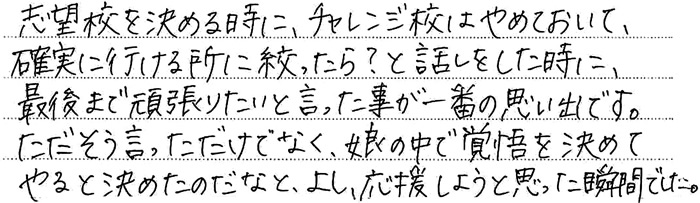 志望校を決める時に、チャレンジ校はやめておいて、
確実に行ける所に絞ったら？と話しをした時に、
最後まで頑張りたいと言った事が一番の思い出です。
ただそう言っただけでなく、娘の中で覚悟を決めて
やると決めたのだなと、よし、応援しようと思った瞬間でした。